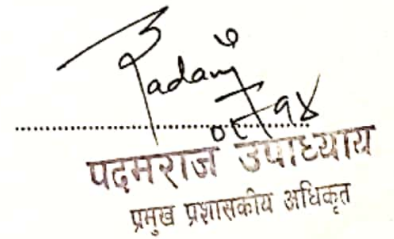 Padam
पदमराज उपाध्याय
प्रमुख प्रशासकीय अधिकृत